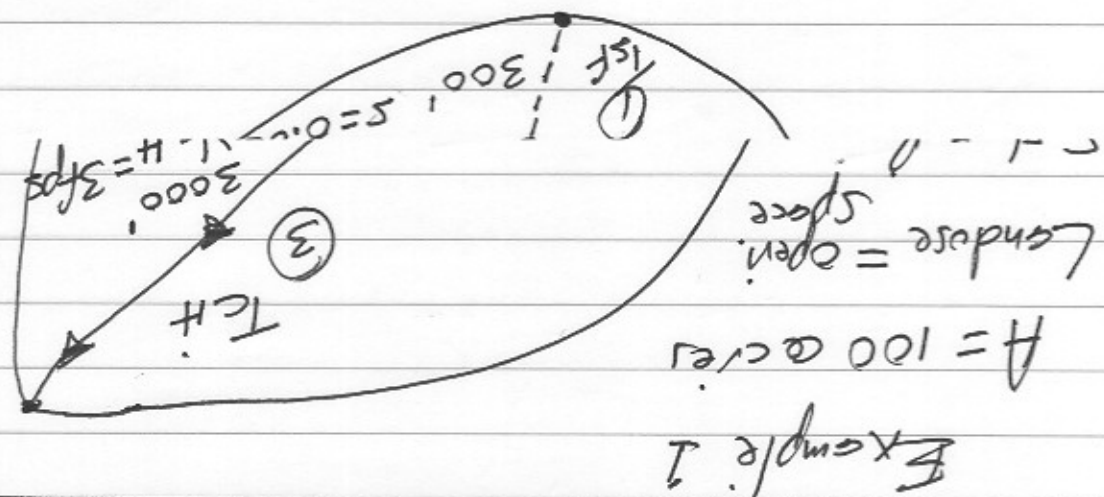 Example 1
A = 100 acres
Landuse = open
space
TcH
③
3000'
= 3fps
300'
①